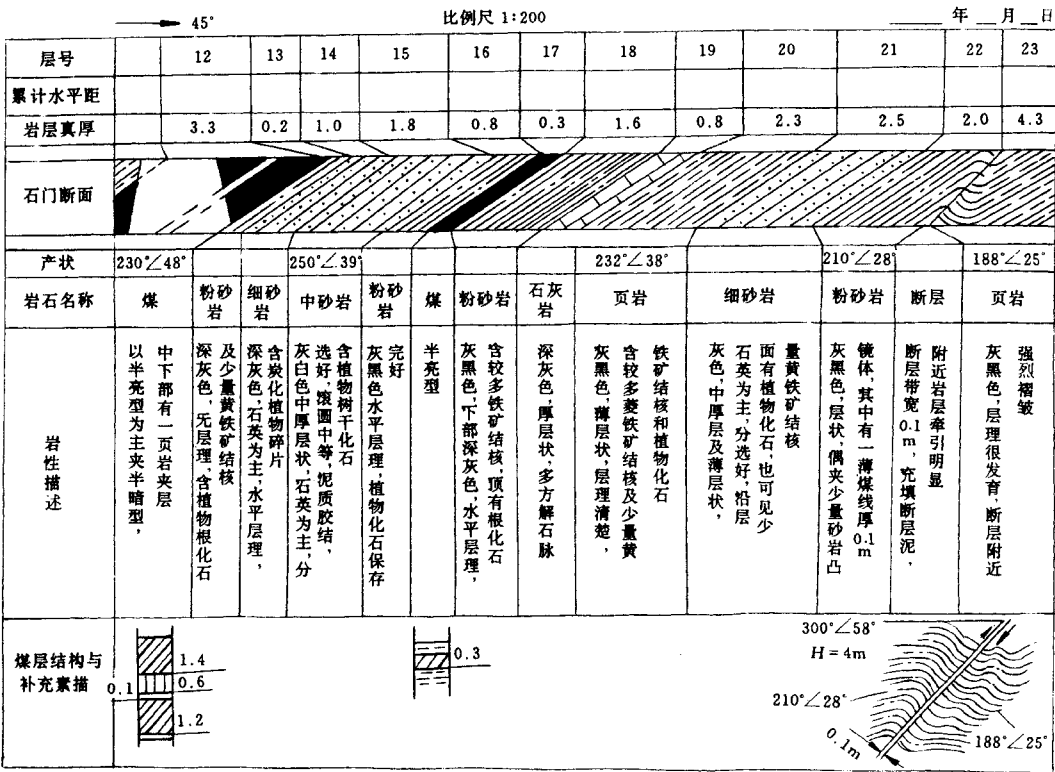 45°
比例尺 1:200
年 月 日
层号 12 13 14 15 16 17 18 19 20 21 22 23
累计水平距
岩层真厚 3.3 0.2 1.0 1.8 0.8 0.3 1.6 0.8 2.3 2.5 2.0 4.3
石门断面
产状 230°∠48° 250°∠39° 232°∠38° 210°∠28° 188°∠25°
岩石名称 煤 粉砂岩 细砂岩 中砂岩 粉砂岩 煤 粉砂岩 石灰岩 页岩 细砂岩 粉砂岩 断层 页岩
岩性描述
以半亮型为主夹半暗型，
中下部有一页岩夹层
深灰色，无层理，含植物根化石
及少量黄铁矿结核
深灰色，石英为主，水平层理，
含炭化植物碎片
灰白色中厚层状，石英为主，分
选好，滚圆中等，泥质胶结，
含植物树干化石
灰黑色水平层理，植物化石保存
完好
半亮型
灰黑色，下部深灰色，水平层理，
含较多铁矿结核，顶有根化石
深灰色，厚层状，多方解石脉
灰黑色，薄层状，层理清楚，
含较多菱铁矿结核及少量黄
铁矿结核和植物化石
灰色，中厚层及薄层状，
石英为主，分选好，沿层
面有植物化石，也可见少
量黄铁矿结核
灰黑色，层状，偶夹少量砂岩凸
镜体，其中有一薄煤线厚0.1m
断层带宽0.1m，充填断层泥，
附近岩层牵引明显
灰黑色，层理很发育，断层附近
强烈褶皱
煤层结构与
补充素描
1.4
0.1 0.6
1.2
0.3
300°∠58°
H=4m
210°∠28°
0.1m
188°∠25°